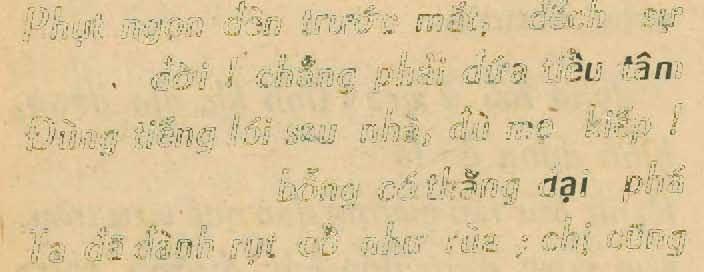 Phụt ngọn đèn trước mắt, đếch sự
đời ! chẳng phải đứa tiều tâm
Đùng tiếng lói sau nhà, đù mẹ kiếp !
bỗng có thằng đại phá
Ta đã đành rụt cổ như rùa ; chị cũng